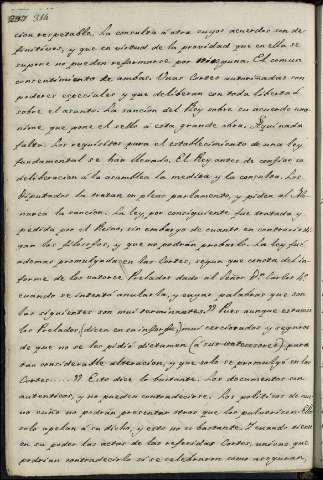 314
cion respetable. La consulta á otra cuyos acuerdos son de-
finitivos, y que en virtud de la providad que en ella se
supone no pueden reformarse por ninguna. El comun
consentimiento de ambas. Unas Cortes autorizadas con
poderes especiales y que deliberan con toda libertad
sobre el asunto. La sancion del Rey sobre su acuerdo una-
nime que pone el sello á esta grande obra. Aqui nada
falta. Los requisitos para el establecimiento de una ley
fundamental se han llenado. El Rey antes de confiar su
deliberacion á la asamblea la medita y la consulta. Los
Diputados la tratan en pleno parlamento, y piden al Mo-
narca la sancion. La ley, por consiguiente fue tratada y
pedida por el Reino, sin embargo de cuanto en contrario di-
gan los filosofos, y que no podrán probarlo. La ley fué
ademas promulgada en las Cortes, segun que consta del in-
forme de los catorce Prelados dado al Señor Dn. Carlos 4º
cuando se intentó anularla, y cuyas palabras que son
las siguientes son muy terminantes. Pues aunque estuvie
los Prelados (dicen en su informe) muy cerciorados y seguros
de que no se les pidió dictamen (á sus antecesores) para
tan considerable alteracion, y que solo se promulgó en las
Cortes.... Esto dice lo bastante. Los documentos son
autenticos, y no pueden contradecirse. Los politicos de nue
vo cuño no podrán presentar otros que los pulvericen. Ellos
solo apelan á su dicho, y esto no es bastante. Y cuando tienen
en su poder las actas de las referidas Cortes, unicas que
podrian contradecirlo si se celebraron como aseguran,